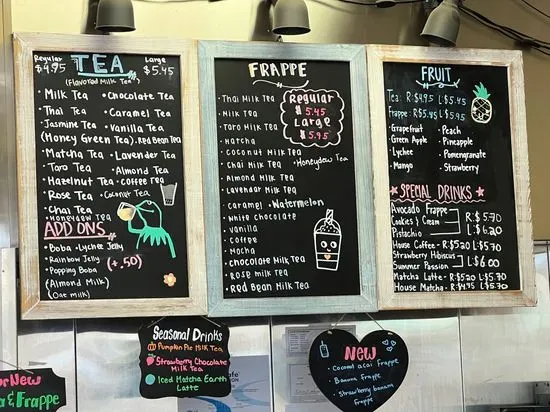 Regular
$4.95
TEA
Large
$5.45
(Flavored Milk Tea)
• Milk Tea • Chocolate Tea
• Thai Tea • Caramel Tea
• Jasmine Tea • Vanilla Tea
(Honey Green Tea) • Red Bean Tea
• Matcha Tea • Lavender Tea
• Taro Tea • Almond Tea
• Hazelnut Tea • Coffee Tea
• Rose Tea • Coconut Tea
• Chai Tea
Honeydew Tea
ADD ONS
• Boba • Lychee Jelly
• Rainbow Jelly
• Popping Boba
(+.50)
(Almond Milk)
(Oat Milk)
FRAPPE
Regular
$5.45
Large
$5.95
• Thai Milk Tea
• Milk Tea
• Taro Milk Tea
• Matcha
• Coconut Milk Tea
• Chai Milk Tea • Honeydew Tea
• Almond Milk Tea
• Lavendar Milk Tea
• Caramel • Watermelon
• White Chocolate
• Vanilla
• Coffee
• Mocha
• Chocolate Milk Tea
• Rose Milk Tea
• Red Bean Milk Tea
FRUIT
Tea: R:$4.95 L:$5.45
Frappe: R:$5.45 L:$5.95
• Grapefruit • Peach
• Green Apple • Pineapple
• Lychee • Pomengranate
• Mango • Strawberry
SPECIAL DRINKS
Avocado Frappe
Cookies & Cream
Pistachio
R:$5.70
L:$6.20
House Coffee - R:$5.20 L:$5.70
Strawberry Hibiscus
Summer Passion
L:$6.00
Matcha Latte: R:$5.20 L:$5.70
House Matcha: R:$4.95 L:$5.70
Seasonal Drinks
Pumpkin Pie Milk Tea
Strawberry Chocolate
Milk Tea
Iced Matcha Earth
Latte
NEW
• Coconut acai Frappe
• Banana Frappe
• Strawberry banana
Frappe
New
& Frappe!